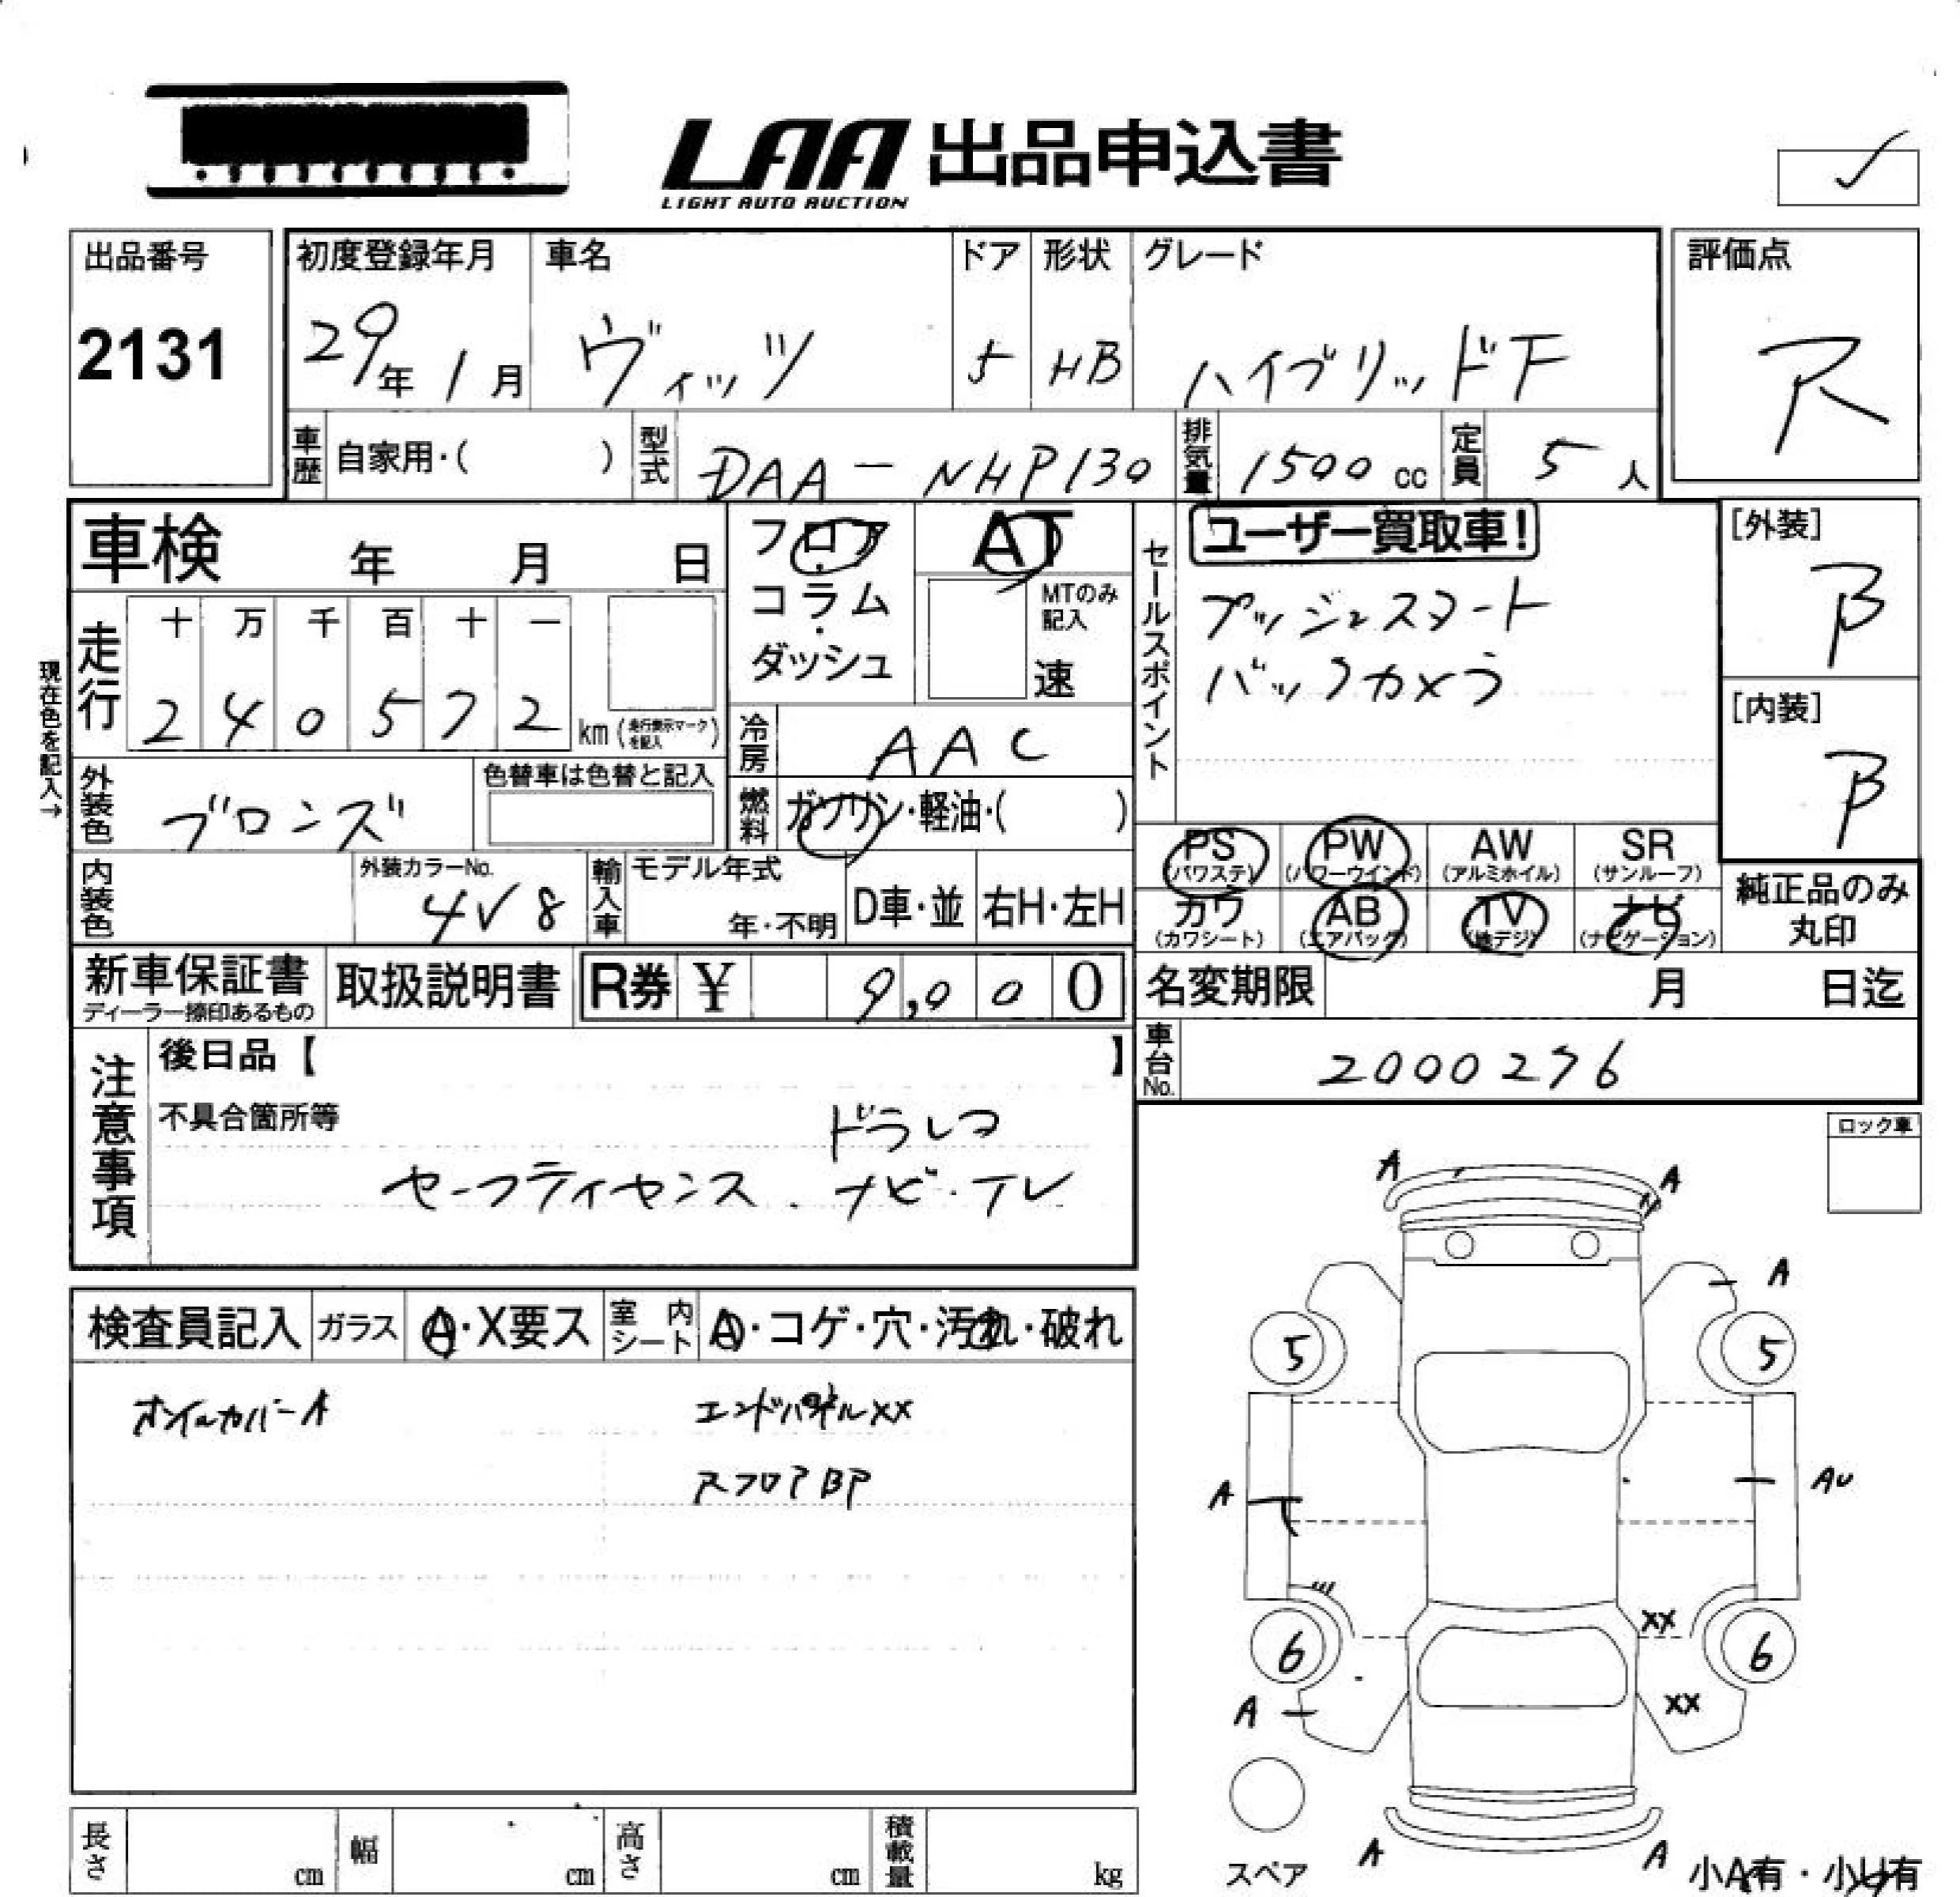 LAA 出品申込書
LIGHT AUTO AUCTION
出品番号
2131
初度登録年月
29年 1月
車名
ヴィッツ
ドア
5
形状
HB
グレード
ハイブリッドF
評価点
R
車歴 自家用・( )
型式 DAA-NHP130
排気量 1500 cc
定員 5 人
車検 年 月 日
フロア・コラム・ダッシュ
AT
MTのみ記入
速
セールスポイント
ユーザー買取車!
プッシュスタート
バックカメラ
[外装]
B
[内装]
B
現在色を記入→
走行
十 万 千 百 十 一
2 4 0 5 7 2 km (走行表示マークを記入)
冷房 AAC
外装色 ブロンズ
色替車は色替と記入
燃料 ガソリン・軽油・( )
内装色
外装カラーNo.
4V8
輸入車 モデル年式
年・不明
D車・並 右H・左H
PS (パワステ)
PW (パワーウインド)
AW (アルミホイル)
SR (サンルーフ)
カワ (カワシート)
AB (エアバッグ)
TV (地デジ)
ナビ (ナビゲーション)
純正品のみ丸印
新車保証書
ディーラー捺印あるもの
取扱説明書
R券 ¥ 9,000
名変期限 月 日迄
車台No. 2000276
注意事項
後日品【 】
不具合箇所等
ドラレコ
セーフティセンス、ナビ・テレ
ロック車
検査員記入
ガラス A・X要ス
室内シート A・コゲ・穴・汚れ・破れ
エンドパネルXX
RフロアBP
A A
A
5 5
A AU
XX
6 6
A XX
A A
スペア
小A有・小U有
長さ cm
幅 cm
高さ cm
積載量 kg